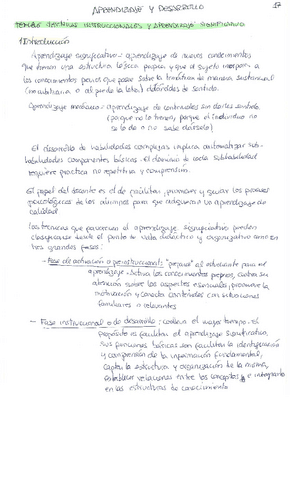 APRENDIZAJE Y DESARROLLO
TÉCNICAS INSTRUCCIONALES Y APRENDIZAJE SIGNIFICATIVO
Introducción
Aprendizaje significativo - aprendizaje de nuevos conocimientos
que tienen una estructura lógica propia y que el sujeto incorpora a
los conocimientos previos que posee sobre la temática de manera sustancial
(no arbitraria o al pie de la letra) dotándoles de sentido.
Aprendizaje mecánico - aprendizaje de contenidos sin darles sentido
(porque no lo tienen, porque el individuo no
se lo da o no sabe dárselo)
El desarrollo de habilidades complejas implica automatizar sub-
habilidades componentes básicas. El dominio de cada subhabilidad
requiere práctica no repetitiva y comprensión.
El papel del docente es el de facilitar, promover y guiar los procesos
psicológicos de los alumnos para que adquieran un aprendizaje de
calidad
Las técnicas que favorecen el aprendizaje significativo pueden
clasificarse desde el punto de vista didáctico y organizativo como en
tres grandes fases:
- Fase de activación o preinstruccional: "prepara" al estudiante para el
aprendizaje. Activa los conocimientos previos, centra su
atención sobre los aspectos esenciales, promueve la
motivación y conecta contenidos con situaciones
familiares o relevantes
- Fase instruccional o de desarrollo: conlleva el mayor tiempo. El
propósito es facilitar el aprendizaje significativo.
Sus funciones básicas son facilitar la identificación
y comprensión de la información fundamental,
captar la estructura y organización de la misma,
establecer relaciones entre los conceptos e integrarlo
en las estructuras de conocimiento